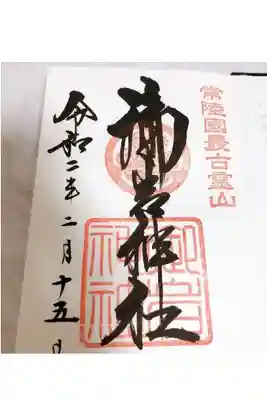 常陸國最古霊山
御岩神社
御岩
神社
令和二年二月十五日